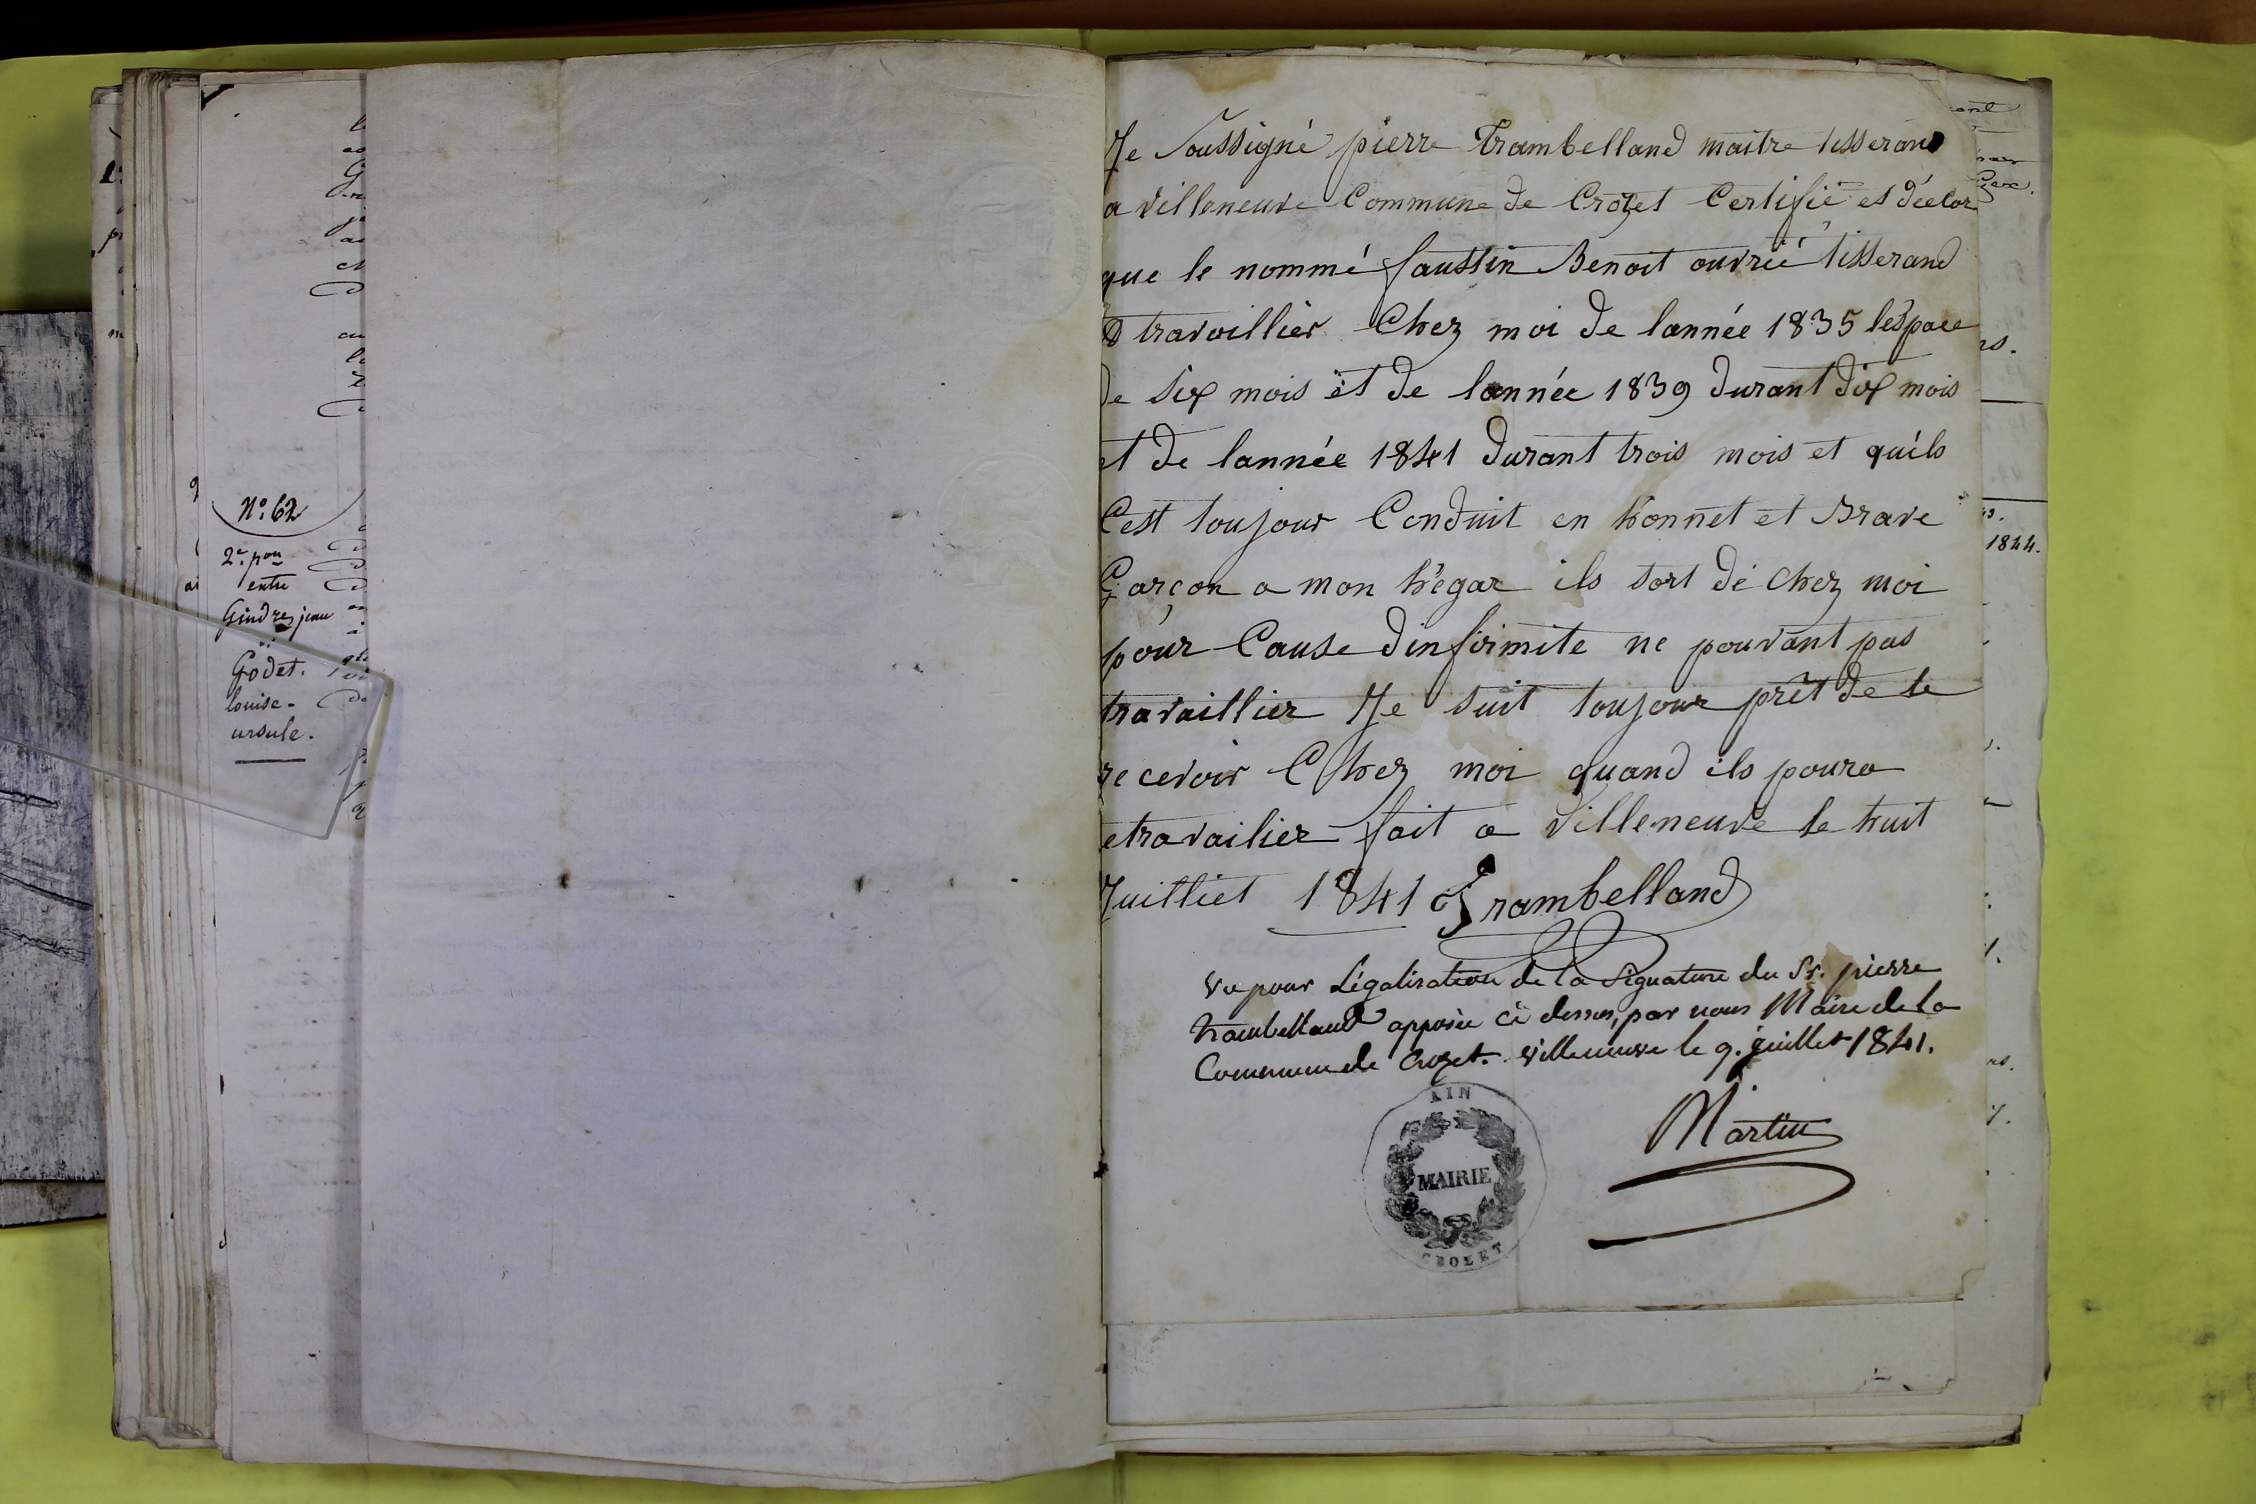 N°. 62
2e. pon
entre
Gindre, jean
et
Godet.
louise-
ursule.
Je Soussigné pierre Trambelland maitre tisserand
a villeneuve Commune de Crozet Certifié et déclar
que le nommé faustin Benoit ouvrié tisserand
travaillier Chez moi de lannée 1835 léspace
de six mois et de lannée 1839 durant dix mois
et de lannée 1841 durant trois mois et quéls
Cest toujour Conduit en honnet et Brave
Garçon a mon hégar ils sort dé chez moi
pour Cause dinfirmite ne pouvant pas
travaillier Je suit toujour prêt de le
recevoir Chez moi quand ils poura
etravailier fait a villeneuve le huit
Juilliet 1841 Trambelland
vu pour Légalisation de la signature du Sr. pierre
trambelland apposée ci dessus, par nous Maire de la
Commune de Crozet. villeneuve le 9. juillet 1841.
Martin
AIN
MAIRIE
CROZET
1844.